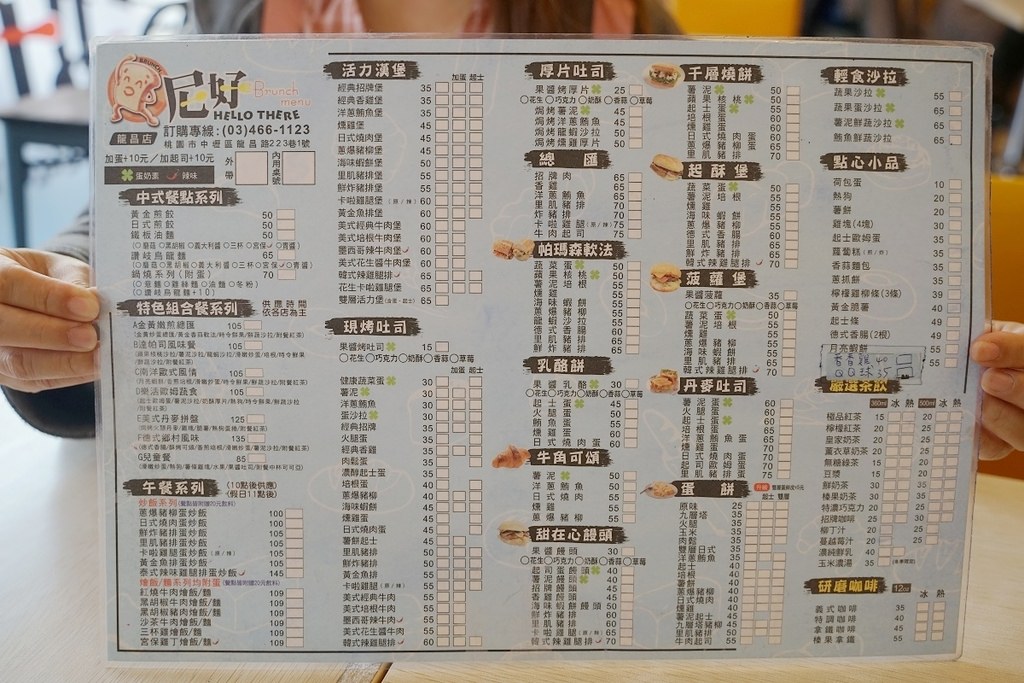 BRUNCH
尼好
Brunch menu
HELLO THERE
龍昌店
訂購專線:(03)466-1123
桃園市中壢區龍昌路223巷1號
加蛋+10元/加起司+10元
外帶
內用桌號
蛋奶素 辣味
中式餐點系列
黃金煎餃 50
日式煎餃 50
鐵板油麵 50
○蘑菇○黑胡椒○義大利醬○三杯○宮保○青醬
讚岐烏龍麵 65
○蘑菇○黑胡椒○義大利醬○三杯○宮保○青醬
鍋燒系列(附蛋) 70
○意麵○雞絲麵○油麵○冬粉
○讚岐烏龍麵+10
特色組合餐系列
供應時間
依各店為主
A金黃嫩煎總匯 105
B達帕司風味餐 105
C南洋歐式風情 105
D樂活歐姆蔬食 105
E美式丹麥拼盤 125
F德式鄉村風味 135
G兒童餐 85
午餐系列
(10點後供應)
(假日11點後)
炒飯系列
蔥爆豬柳蛋炒飯 105
日式燒肉蛋炒飯 105
鮮炸豬排蛋炒飯 105
里肌豬排蛋炒飯 105
卡啦雞腿蛋炒飯(原/辣) 105
黃金魚排蛋炒飯 105
泰式辣味雞腿排蛋炒飯 145
燴飯/麵系列均附蛋
紅燒牛肉燴飯/麵 109
黑胡椒牛肉燴飯/麵 109
黑胡椒豬肉燴飯/麵 109
沙茶牛肉燴飯/麵 109
三杯雞燴飯/麵 109
宮保雞丁燴飯/麵 109
活力漢堡
加蛋 起士
經典招牌堡 35
經典香雞堡 35
洋蔥鮪魚堡 35
燻雞堡 45
日式燒肉堡 45
蔥爆豬柳堡 45
海味蝦餅堡 50
里肌豬排堡 55
鮮炸豬排堡 55
卡啦雞腿堡(原/辣) 60
黃金魚排堡 60
美式經典牛肉堡 60
美式培根牛肉堡 60
墨西哥辣牛肉堡 60
美式花生醬牛肉堡 60
韓式辣雞腿排堡 65
花生卡啦雞腿堡 65
雙層活力堡 65
現烤吐司
果醬烤吐司 15
○花生○巧克力○奶酥○香蒜○草莓
加蛋 起士
健康蔬菜蛋 30
薯泥 30
洋蔥鮪魚 30
蛋沙拉 30
經典招牌 35
火腿蛋 35
經典香雞 35
肉鬆蛋 35
濃醇起士蛋 35
培根蛋 40
蔥爆豬柳 40
海味蝦餅 45
燻雞蛋 45
日式燒肉蛋 45
薯餅起士 45
里肌豬排 50
鮮炸豬排 50
黃金魚排 55
卡啦雞腿(原/辣) 55
美式經典牛肉 55
美式培根牛肉 55
墨西哥辣牛肉 55
美式花生醬牛肉 55
韓式辣雞腿排 60
厚片吐司
果醬烤厚片 25
○花生○巧克力○奶酥○香蒜○草莓
焗烤薯泥 50
焗烤洋蔥鮪魚 50
焗烤龍蝦沙拉 50
焗烤燻雞厚片 50
總匯
招牌肉 65
香雞 65
洋蔥鮪魚 65
里肌豬排 70
炸豬排 70
卡啦雞(原/辣) 75
牛肉起司 75
帕瑪森軟法
蔬菜蛋 50
蘋果核桃 50
薯泥 50
燻雞 55
海味蝦餅 60
蔥爆豬柳 60
龍蝦沙拉 60
德式香腸 65
里肌豬排 65
鮮炸豬排 65
乳酪餅
果醬乳酪 30
○花生○巧克力○奶酥○香蒜○草莓
起士蛋 45
火腿蛋 50
燻雞蛋 60
日式燒肉蛋 60
牛角可頌
薯泥 50
洋蔥鮪魚 50
日式燒肉 55
燻雞 55
蔥爆豬柳 55
甜在心饅頭
果醬饅頭 30
○花生○巧克力○奶酥○香蒜○草莓
起司蛋饅頭 40
薯泥饅頭 40
招牌饅頭 45
香雞饅頭 45
海味蝦餅饅頭 50
鮮炸豬排 60
里肌豬排 60
卡啦雞腿(原/辣) 65
韓式辣雞腿排 70
千層燒餅
薯泥 50
蘋果核桃 50
起士蛋 50
培根蛋 60
燻雞蛋 60
日式燒肉蛋 60
蔥爆豬柳蛋 60
里肌豬排 65
起酥堡
蔬菜蛋 50
薯泥 50
洋蔥培根 55
燻雞 55
海味蝦餅 60
蔥爆豬柳 60
德式香腸 60
里肌豬排 65
鮮炸豬排 65
韓式辣雞腿排 70
菠蘿堡
果醬菠蘿 35
○花生○巧克力○奶酥○香蒜○草莓
蔬菜蛋 50
薯泥 50
洋蔥培根 55
燻雞 55
海味蝦餅 60
蔥爆豬柳 60
里肌豬排 65
鮮炸豬排 65
韓式辣雞腿排 70
丹麥吐司
薯泥蛋 60
火腿蛋 60
起士蛋 60
培根蛋 65
洋蔥鮪魚蛋 65
燻雞蛋 70
日式燒肉蛋 70
起司歐姆蛋 70
里肌豬排蛋 75
蛋餅
起士 雙層
原味 25
九層塔 35
火腿 35
玉米 35
肉鬆 35
雙層日式 35
洋蔥鮪魚 35
起士 40
培根 40
薯餅 40
蔥爆豬柳 40
日式燒肉 40
燻雞 40
薯泥起士 45
九層塔豬柳 50
里肌豬排 50
牛肉起司 55
輕食沙拉
蔬果沙拉 55
蔬果蛋沙拉 65
薯泥鮮蔬沙拉 65
鮪魚鮮蔬沙拉 65
點心小品
荷包蛋 10
熱狗 20
薯餅 20
雞塊(4塊) 30
起士歐姆蛋 35
蘿蔔糕 35
香蒜麵包 35
蔥抓餅 35
檸檬雞柳條(3條) 39
黃金脆薯 40
起士條 49
德式香腸(2根) 49
月亮蝦餅 55
55
QQ球 35
嚴選茶飲
360ml 冰 熱 500ml 冰 熱
極品紅茶 15 20
檸檬紅茶 20 25
皇家奶茶 20 25
薰衣草奶茶 20 25
無糖綠茶 15 20
豆漿 15 20
鮮奶茶 25 35
榛果奶茶 25 35
特濃巧克力 20 30
招牌咖啡 25 35
柳丁汁 20 30
蔓越莓汁 20 30
濃純鮮乳 40
玉米濃湯 35
研磨咖啡
12oz 冰 熱
義式咖啡 35
特調咖啡 45
拿鐵咖啡 55
榛果拿鐵 55